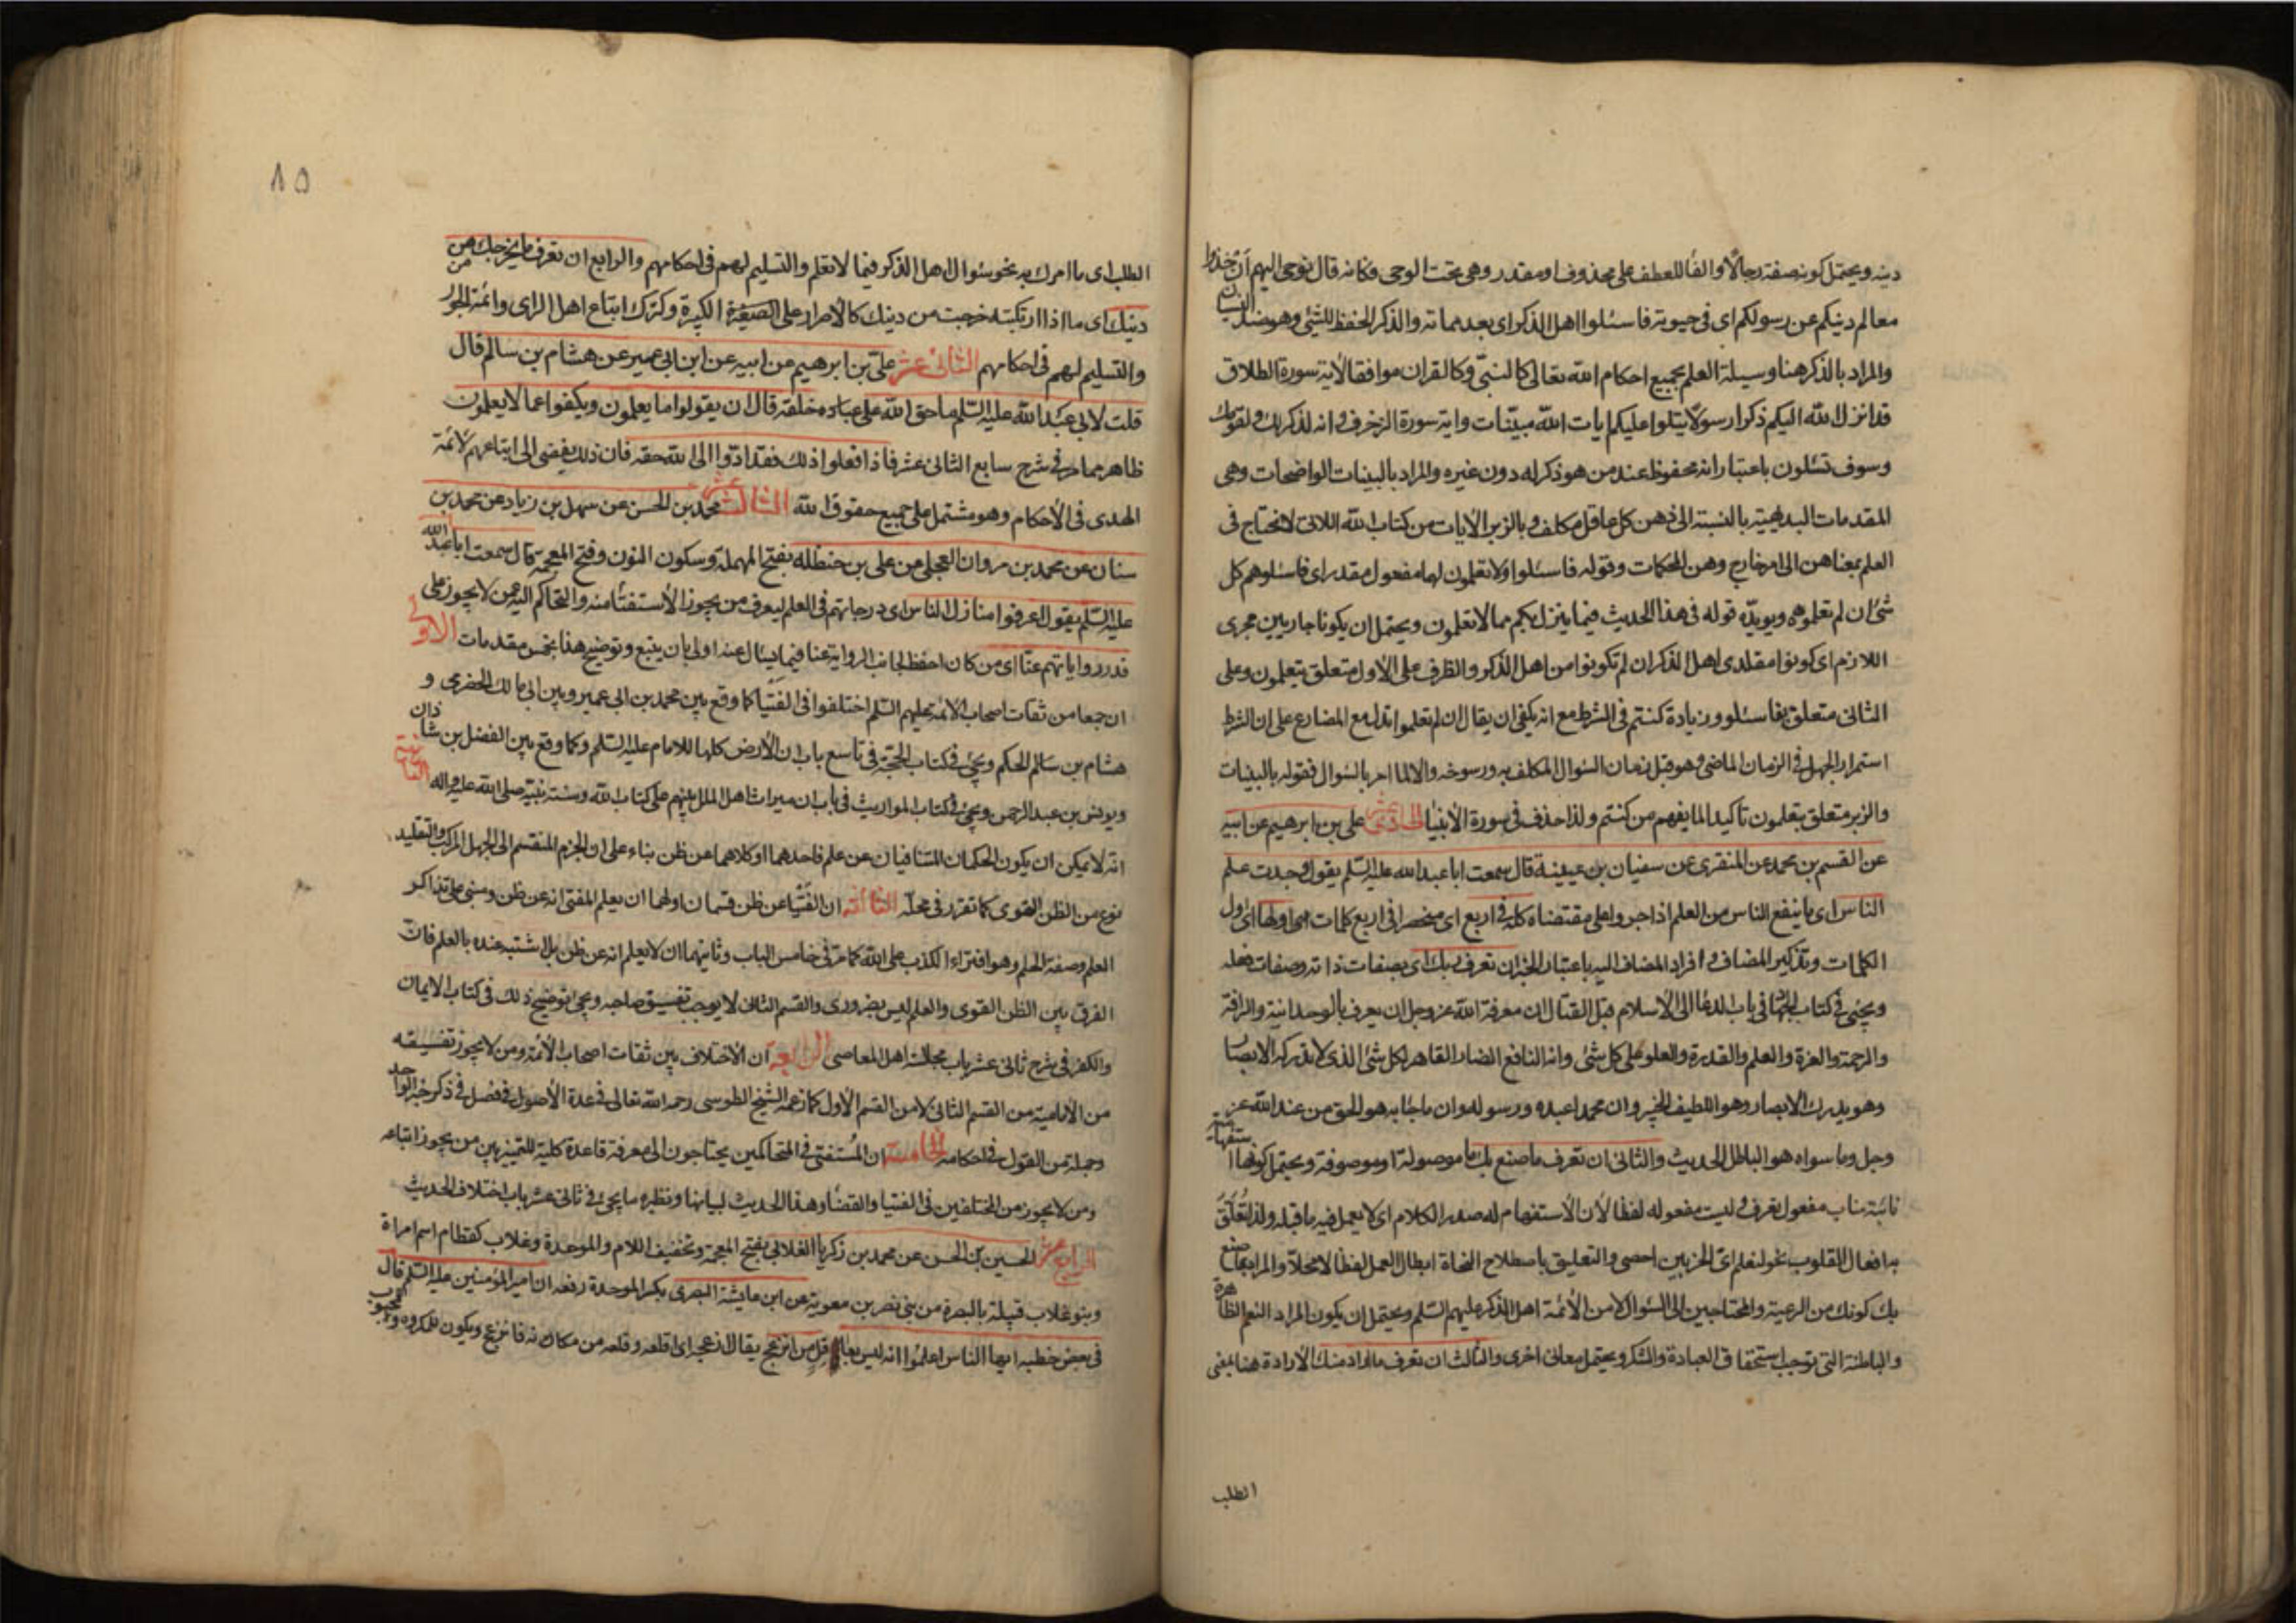 دينه ويحتمل كونه صفة رجالا والفا للعطف على محذوف او مقدر وهى تحت الوحى فكانه قال نوحى اليهم ان تخذوا
معالم دينكم عن رسولكم اى فى حيوته فاسئلوا اهل الذكر اى بعد مماته والذكر الحفظ للشئ وهو ضد النسيان
والمراد بالذكر هنا وسيلة العلم بجميع احكام الله تعالى كالنبىّ وكالقران موافقا لاية سورة الطلاق
قد انزل الله اليكم ذكرا رسولا يتلوا عليكم ايات الله مبيّنات واية سورة الزخرف وانه لذكر لك ولقومك
وسوف تسئلون باعتبار انه محفوظ عند من هو ذكر له دون غيره والمراد بالبينات الواضحات وهى
المقدمات البديهية بالنسبة الى ذهن كل عاقل مكلف وبالزبر الايات من كتاب الله اللاتى لا تحتاج فى
العلم بمعناهن الى امر خارج وهن المحكمات وقوله فاسئلوا ولا تعلمون لهما مفعول مقدر اى فاسئلوهم كل
شئ ان لم تعلموه ويويدّه قوله فى هذا الحديث فيما ينزل بكم مما لا تعلمون ويحتمل ان يكونا جاريين مجرى
اللازم اى كونوا مقلدى اهل الذكر ان لم تكونوا من اهل الذكر والظرف على الاول متعلق بتعلمون وعلى
الثانى متعلق بفاسئلوا وزيادة كنتم فى الشرط مع انه يكفى ان يقال ان لم تعلموا تدل مع المضارع على ان الشرط
استمرار الجهل فى الزمان الماضى وهو قبل زمان السؤال المكلف به ورسوخه والا لما امر بالسؤال فقوله بالبينات
والزبر متعلق بتعلمون تاكيدا لما يفهم من كنتم ولذا حذف فى سورة الانبيا الحادى عشر على بن ابرهيم عن ابيه
عن القسم بن محمد عن المنقرى عن سفيان بن عيينة قال سمعت ابا عبد الله عليه السّلم يقول وجدت علم
الناس اى ما ينفع الناس من العلم اذا جروا على مقتضاه كله فى اربع اى منحصرا فى اربع كلمات اولها اى اول
الكلمات وتذكير المضاف وافراد المضاف اليه باعتبار الخبر ان تعرف ربك اى بصفات ذاته وصفات فعله
ويجئ فى كتاب الجهاد فى باب الدعا الى الاسلام قبل القتال ان معرفة الله عز وجل ان يعرف بالوحدانية والرافة
والرحمة والعزة والعلم والقدرة والعلو على كل شئ وانه النافع الضار القاهر لكل شئ الذى لا تدركه الابصار
وهو يدرك الابصار وهو اللطيف الخبير وان محمدا عبده ورسوله وان ما جا به هو الحق من عند الله عز
وجل وما سواه هو الباطل الحديث والثانى ان تعرف ما صنع بك ما موصولة او موصوفة ويحتمل كونها استفهامية
نائبة مناب مفعول تعرف وليست مفعوله لفظا لان الاستفهام له صدر الكلام اى لا يعمل فيه ما قبله ولذا تُعَلَّقُ
به افعال القلوب نحو لنعلم اىّ الحزبين احصى والتعليق باصطلاح النحاة ابطال العمل لفظا لا محلا والمراد بما صنع
بك كونك من الرعية والمحتاجين الى السؤال لا من الائمة اهل الذكر عليهم السّلم ويحتمل ان يكون المراد النعم الظاهرة
والباطنة التى توجب استحقاق العبادة والشكر ويحتمل معانى اخرى والثالث ان تعرف ما اراد منك الارادة هنا بمعنى
الطلب
٨٥
الطلب اى ما امرك به نحو سئوال اهل الذكر فيما لا تعلم والتسليم لهم فى احكامهم والرابع ان تعرف ما يخرجك من
دينك اى ما اذا ارتكبته خرجت من دينك كالاصرار على الصغيرة الكبيرة وكترك اتباع اهل الراى وائمة الجور
والتسليم لهم فى احكامهم الثانى عشر علىّ بن ابرهيم عن ابيه عن ابن ابى عمير عن هشام بن سالم قال
قلت لابى عبد الله عليه السّلم ما حق الله على عباده خلقه قال ان يقولوا ما يعلمون ويكفوا عما لا يعلمون
ظاهر مما مر فى شرح سابع الثانى عشر فاذا فعلوا ذلك فقد ادّوا الى الله حقه فان ذلك يفضى الى اتباعهم لائمة
الهدى فى الاحكام وهو مشتمل على جميع حقوق الله الثالث عشر محمد بن الحسن عن سهل بن زياد عن محمد بن
سنان عن محمد بن مروان العجلى عن على بن حنظله بفتح المهملة وسكون النون وفتح المعجمة قال سمعت ابا عبد الله
عليه السّلم يقول اعرفوا منازل الناس اى درجاتهم فى العلم ليعرف من يجوز الاستفتا منه والتحاكم اليه عمن لا يجوز على
قدر رواياتهم عنّا اى من كان احفظ لجانب الرواية عنا فيما يسئال عنه اولى بان يتبع وتوضيح هذا بخمس مقدمات الاولى
ان جمعا من ثقات اصحاب الائمة عليهم السّلم اختلفوا فى الفتيا كما وقع بين محمد بن ابى عمير وبين ابى مالك الحضرمى و
هشام بن سالم الحكم ويجئ فى كتاب الحجّة فى تاسع باب ان الارض كلها للامام عليه السّلم وكما وقع بين الفضل بن شاذان
ويونس بن عبد الرحمن ويجئ فى كتاب المواريث فى باب ان ميراث اهل الملل بينهم على كتاب الله وسنة نبيّه صلى الله عليه واله الثانية
انه لا يمكن ان يكون الحكمان المتنافيان عن علم فاحدهما او كلاهما عن ظن بناء على ان الجزم المنقسم الى الجهل المركب والتقليد
نوع من الظن القوى كما تقرر فى محلّه الثالثة ان الفتيا عن ظن قسمان اولهما ان يعلم المفتى انه عن ظن ومبنى على تذاكر
العلم وصفة الحلم وهو افتراء الكذب على الله كما مرّ فى خامس الباب وثانيهما ان لا يعلم انه عن ظن بل اشتبه عنده بالعلم فان
الفرق بين الظن القوى والعلم ليس بضرورى والقسم الثانى لا يوجب تفسيق صاحبه ويجئ توضيح ذلك فى كتاب الايمان
والكفر فى شرح ثانى عشر باب مجالسة اهل المعاصى الرابعة ان الاختلاف بين ثقات اصحاب الائمة ومن لا يجوز تفسيقه
من الامامية من القسم الثانى لا من القسم الاول كما زعمه الشيخ الطوسى رحمه الله تعالى فى عدة الاصول فى فصل فى ذكر خبر الواحد
وجملة من القول فى احكامه الخامسة ان المُستفتى فى المتحاكمين يحتاجون الى معرفة قاعدة كلية للتمييز بين من يجوز اتباعه
ومن لا يجوز من المختلفين فى الفتيا والقضا وهذا الحديث لبيانها ونظيره ما يجئ فى ثانى عشر باب اختلاف الحديث
الرابع عشر الحسين بن الحسن عن محمد بن زكريا الغلابى بفتح المعجمة وتخفيف اللام والموحدة وغلاب كقطام اسم امراة
وبنو غلاب قبيلة بالبصرة من بنى نصر بن معوية عن ابن عايشة البصرى بكسر الموحدة رفعه ان امير المؤمنين عليه السّلم قال
فى بعض خطبه ايها الناس اعلمُوا انه ليس بعاقل من انزعج يقال ازعجه اى اقلعه وقلعه من مكانه فانزعج ويكون للمكروه والمحبوب